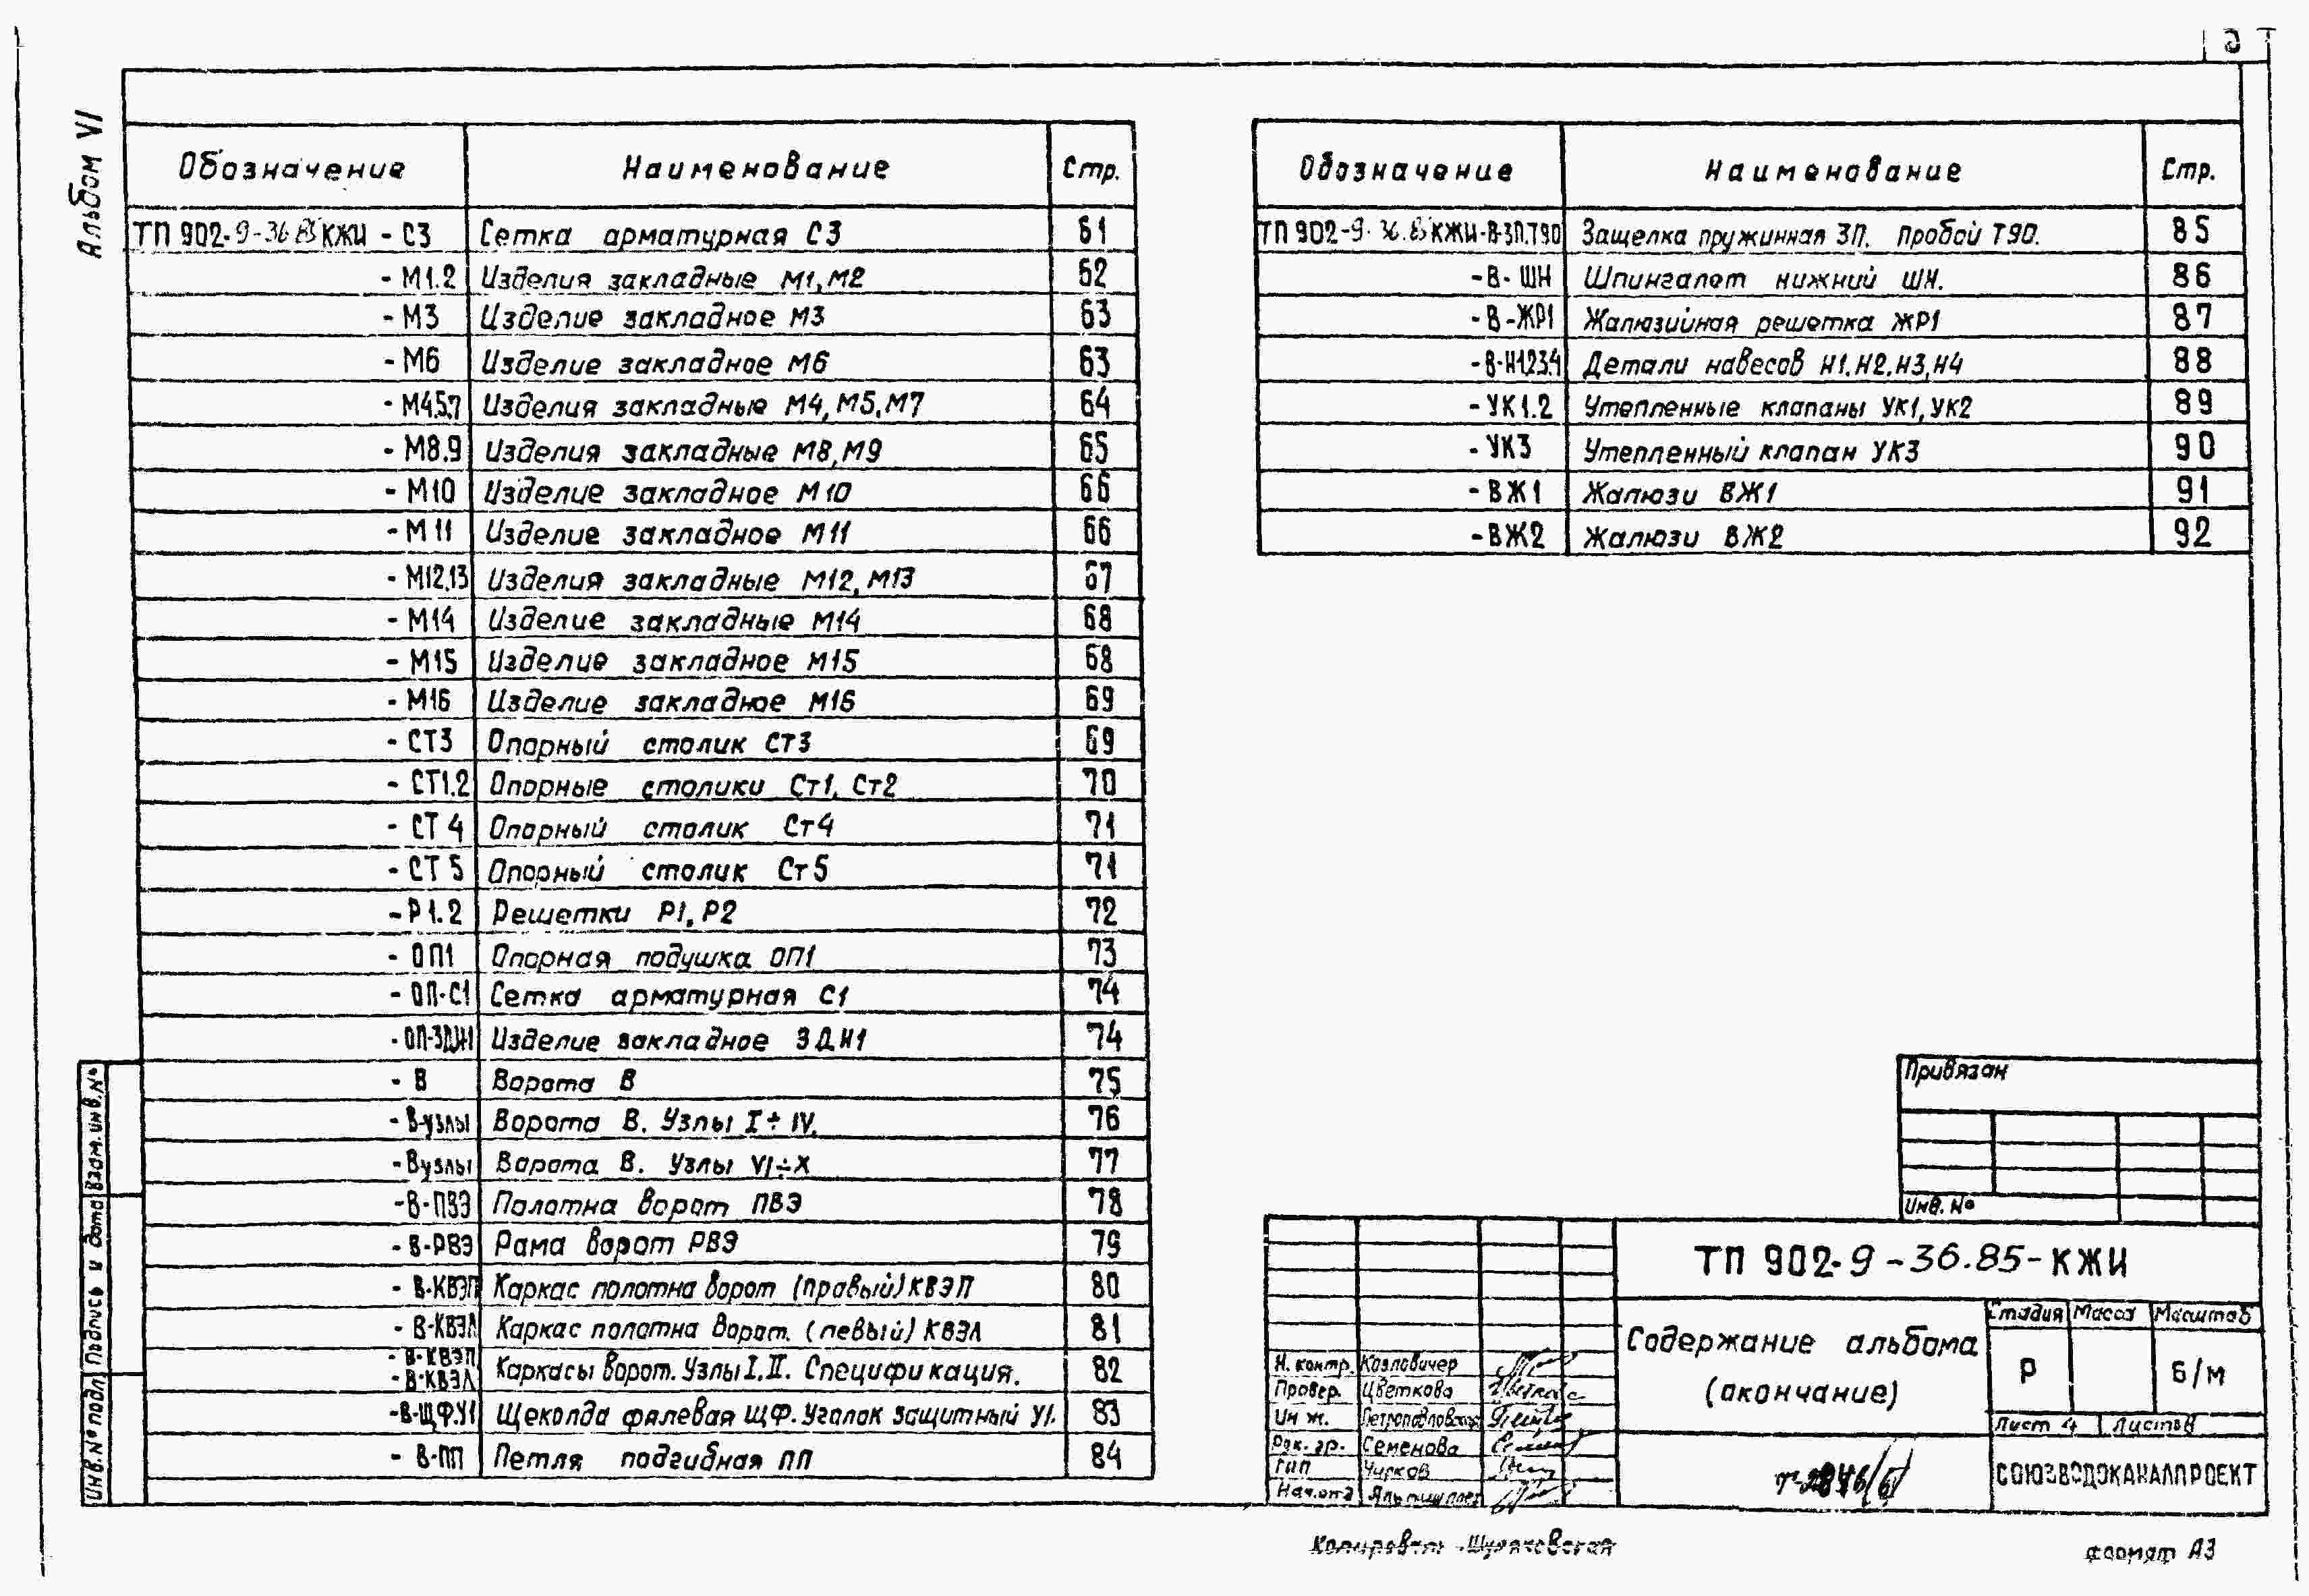 Альбом VI
Обозначение Наименование Стр.
ТП 902-9-36.85 КЖИ - С3 Сетка арматурная С3 61
- М1.2 Изделия закладные М1, М2 62
- М3 Изделие закладное М3 63
- М6 Изделие закладное М6 63
- М4.5.7 Изделия закладные М4, М5, М7 64
- М8.9 Изделия закладные М8, М9 65
- М10 Изделие закладное М10 66
- М11 Изделие закладное М11 66
- М12.13 Изделия закладные М12, М13 67
- М14 Изделие закладные М14 68
- М15 Изделие закладное М15 68
- М16 Изделие закладное М16 69
- СТ3 Опорный столик СТ3 69
- СТ1.2 Опорные столики Ст1, Ст2 70
- СТ 4 Опорный столик Ст4 71
- СТ 5 Опорный столик Ст5 71
- Р1.2 Решетки Р1, Р2 72
- ОП1 Опорная подушка ОП1 73
- ОП-С1 Сетка арматурная С1 74
- ОП-ЗДИ1 Изделие закладное ЗДИ1 74
- В Ворота В 75
- В-узлы Ворота В. Узлы I ÷ IV. 76
- В узлы Ворота В. Узлы VI ÷ X 77
- В-ПВЭ Полотна ворот ПВЭ 78
- В-РВЭ Рама ворот РВЭ 79
- В-КВЭП Каркас полотна ворот (правый) КВЭП 80
- В-КВЭЛ Каркас полотна ворот. (левый) КВЭЛ 81
- В-КВЭП
- В-КВЭЛ Каркасы ворот. Узлы I, II. Спецификация. 82
- В-ЩФ.У1 Щеколда фалевая ЩФ. Уголок защитный У1. 83
- В-ПП Петля подгибная ПП 84
Обозначение Наименование Стр.
ТП 902-9-36.85 КЖИ-В-ЗП.Т90 Защелка пружинная ЗП. Пробой Т90. 85
- В - ШН Шпингалет нижний ШН. 86
- В - ЖР1 Жалюзийная решетка ЖР1 87
- В-Н1.2.3.4 Детали навесов Н1, Н2, Н3, Н4 88
- УК1.2 Утепленные клапаны УК1, УК2 89
- УК3 Утепленный клапан УК3 90
- ВЖ1 Жалюзи ВЖ1 91
- ВЖ2 Жалюзи ВЖ2 92
Взам. инв. №
Подпись и дата
Инв. № подл.
Привязан
Инв. №
ТП 902-9-36.85-КЖИ
Содержание альбома
(окончание)
Стадия Масса Масштаб
Р б/м
Лист 4 Листов
СОЮЗВОДОКАНАЛПРОЕКТ
Н. контр. Козловичер
Провер. Цветкова
Инж. Петропавловская
Рук. гр. Семенова
ГИП Чирков
Нач. отд
Копировал
формат А3